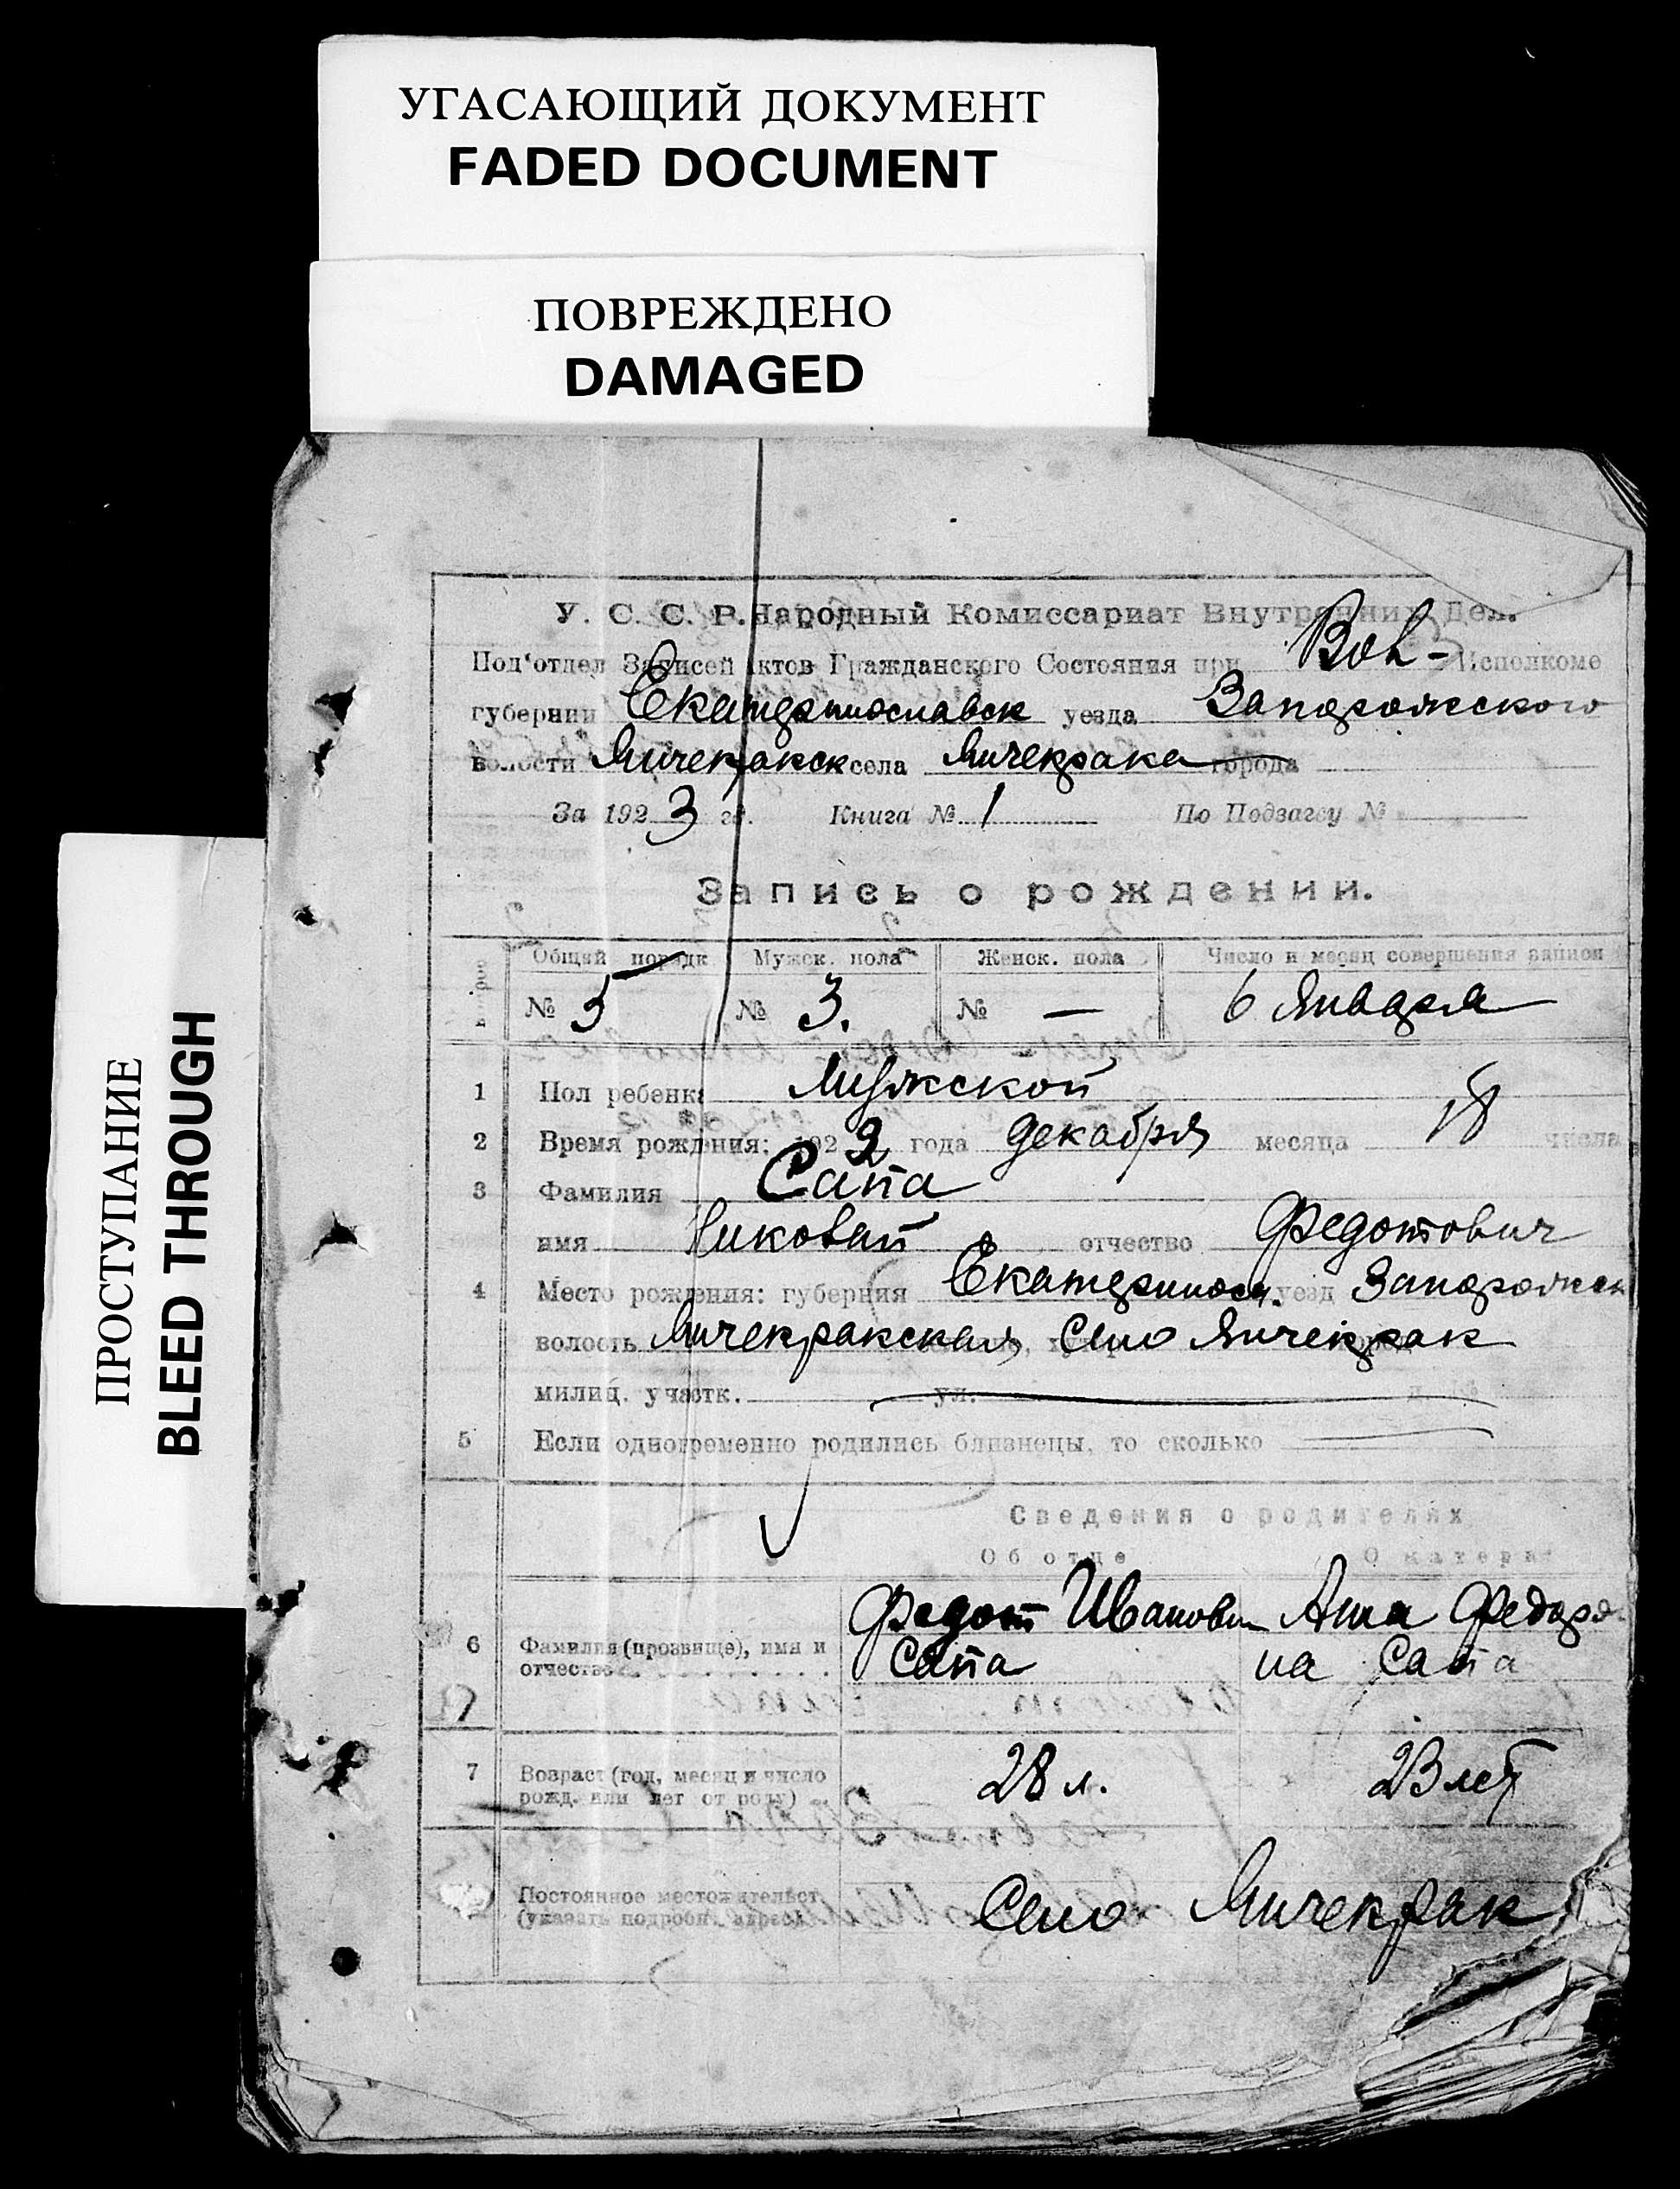 УГАСАЮЩИЙ ДОКУМЕНТ
FADED DOCUMENT
ПОВРЕЖДЕНО
DAMAGED
ПРОСТУПАНИЕ
BLEED THROUGH
У. С. С. Р. Народный Комиссариат Внутренних Дел.
Под'отдел Записей Актов Гражданского Состояния при Вол- Исполкоме
губернии Екатеринославск уезда Запорожского
волости Янчекракск села Янчекрака города
За 1923 г. Книга № 1 По Подзагсу №
Запись о рождении.
Общий порядк Мужск. пола Женск. пола Число и месяц совершения записи
№ 5 № 3. № — 6 Января
1 Пол ребенка Мужской
2 Время рождения: 1922 года декабря месяца 18 числа
3 Фамилия Сапа
имя Николай отчество Федотович
4 Место рождения: губерния Екатериносл. уезд Запорожск
волость Янчекракская, Село Янчекрак
милиц. участк. ул.
5 Если одновременно родились близнецы, то сколько
Сведения о родителях
Об отце О матери
Федот Иванович Анна Федоров-
6 Фамилия (прозвище), имя и отчество Сапа на Сапа
7 Возраст (год, месяц и число рожд. или лет от роду) 28 л. 23 лет
Постоянное местожительст. (указать подробн. адрес) Село Янчекрак